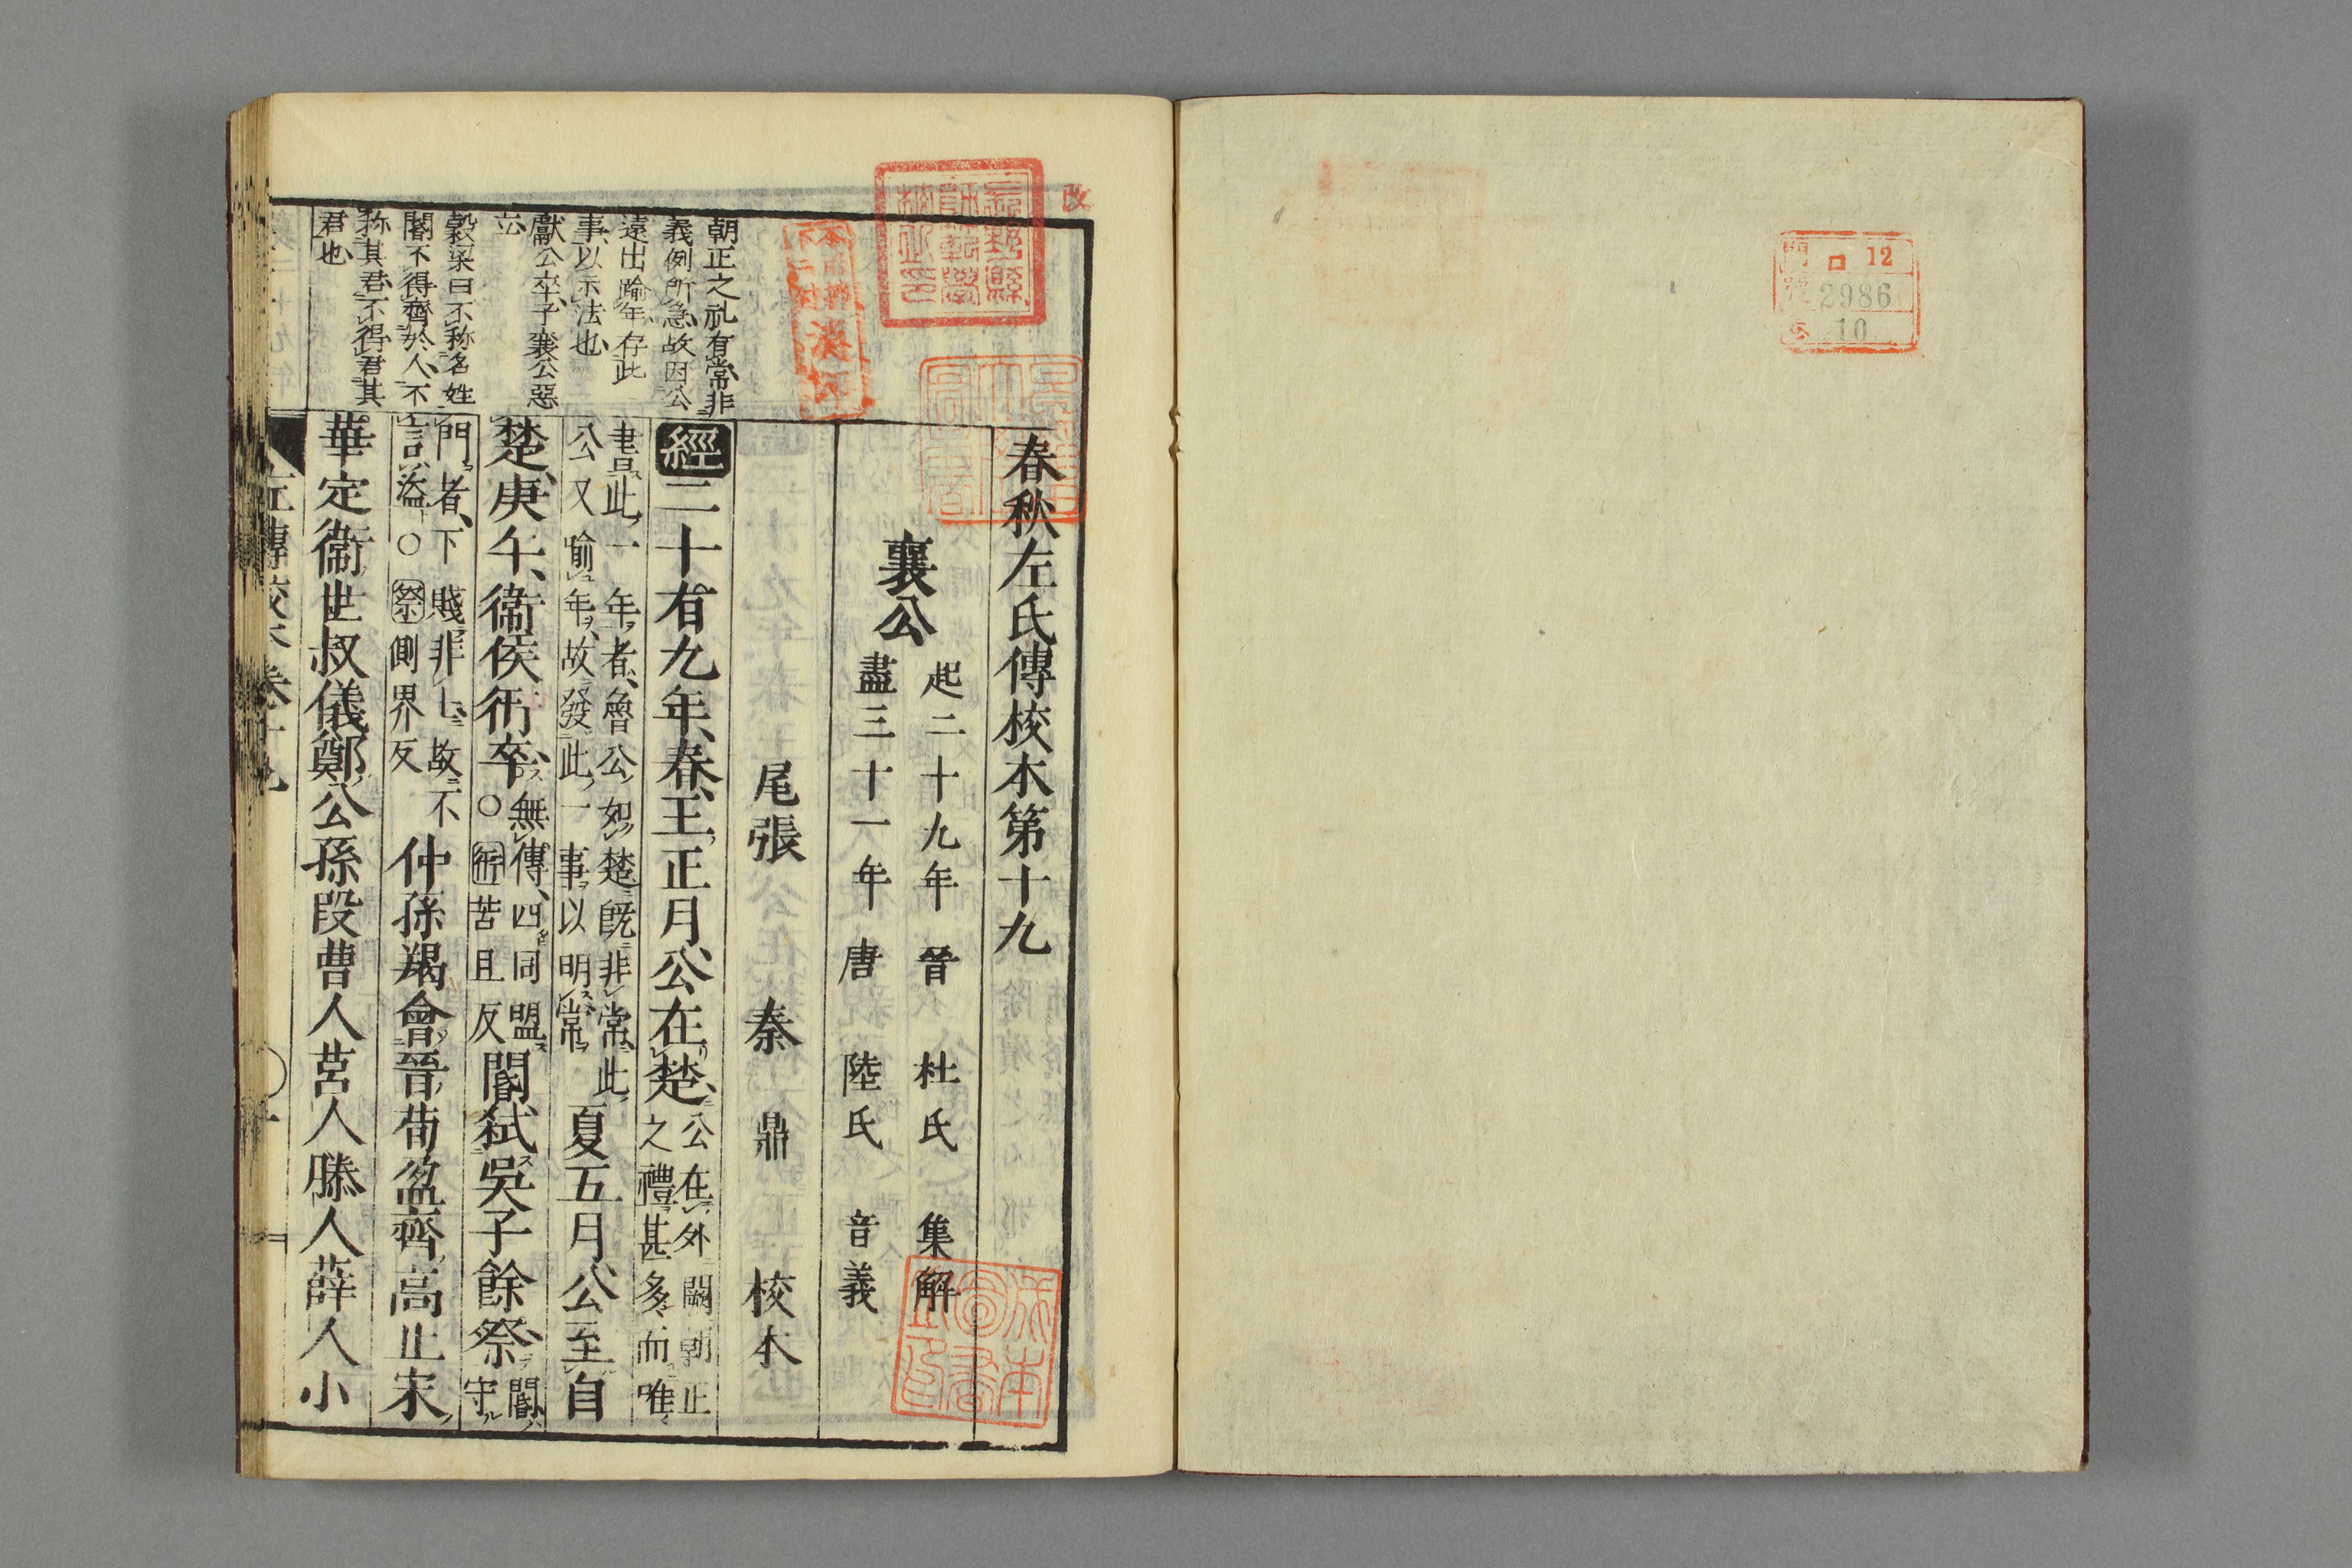 門 口 12
號 2986
10
改
春秋左氏傳校本第十九
襄公
起二十九年 晉 杜氏 集解
盡三十一年 唐 陸氏 音義
尾張 秦 鼎 校本
朝正之礼有常非
義例所急故因公
遠出踰年存此
事以示法也
獻公卒子襄公惡
立
穀梁曰不称名姓
閽不得齊於人不
称其君不得君其
君也
經二十有九年春王正月公在楚
公在外闕朝正
之禮甚多而唯
書此一年者魯公如楚既非常此
公又踰年故發此一事以明常
夏五月公至自
楚庚午衞侯衎卒
無傳四同盟
○衎苦旦反
閽弒吳子餘祭
閽守
門者下賤非士故不
言盜○祭側界反
仲孫羯會晉荀盈齊高止宋
華定衞世叔儀鄭公孫段曹人莒人滕人薛人小
左傳校本 卷十九